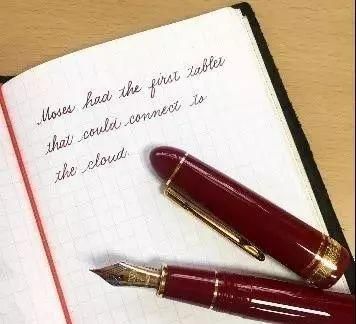 Moses had the first tablet
that could connect to
the cloud.